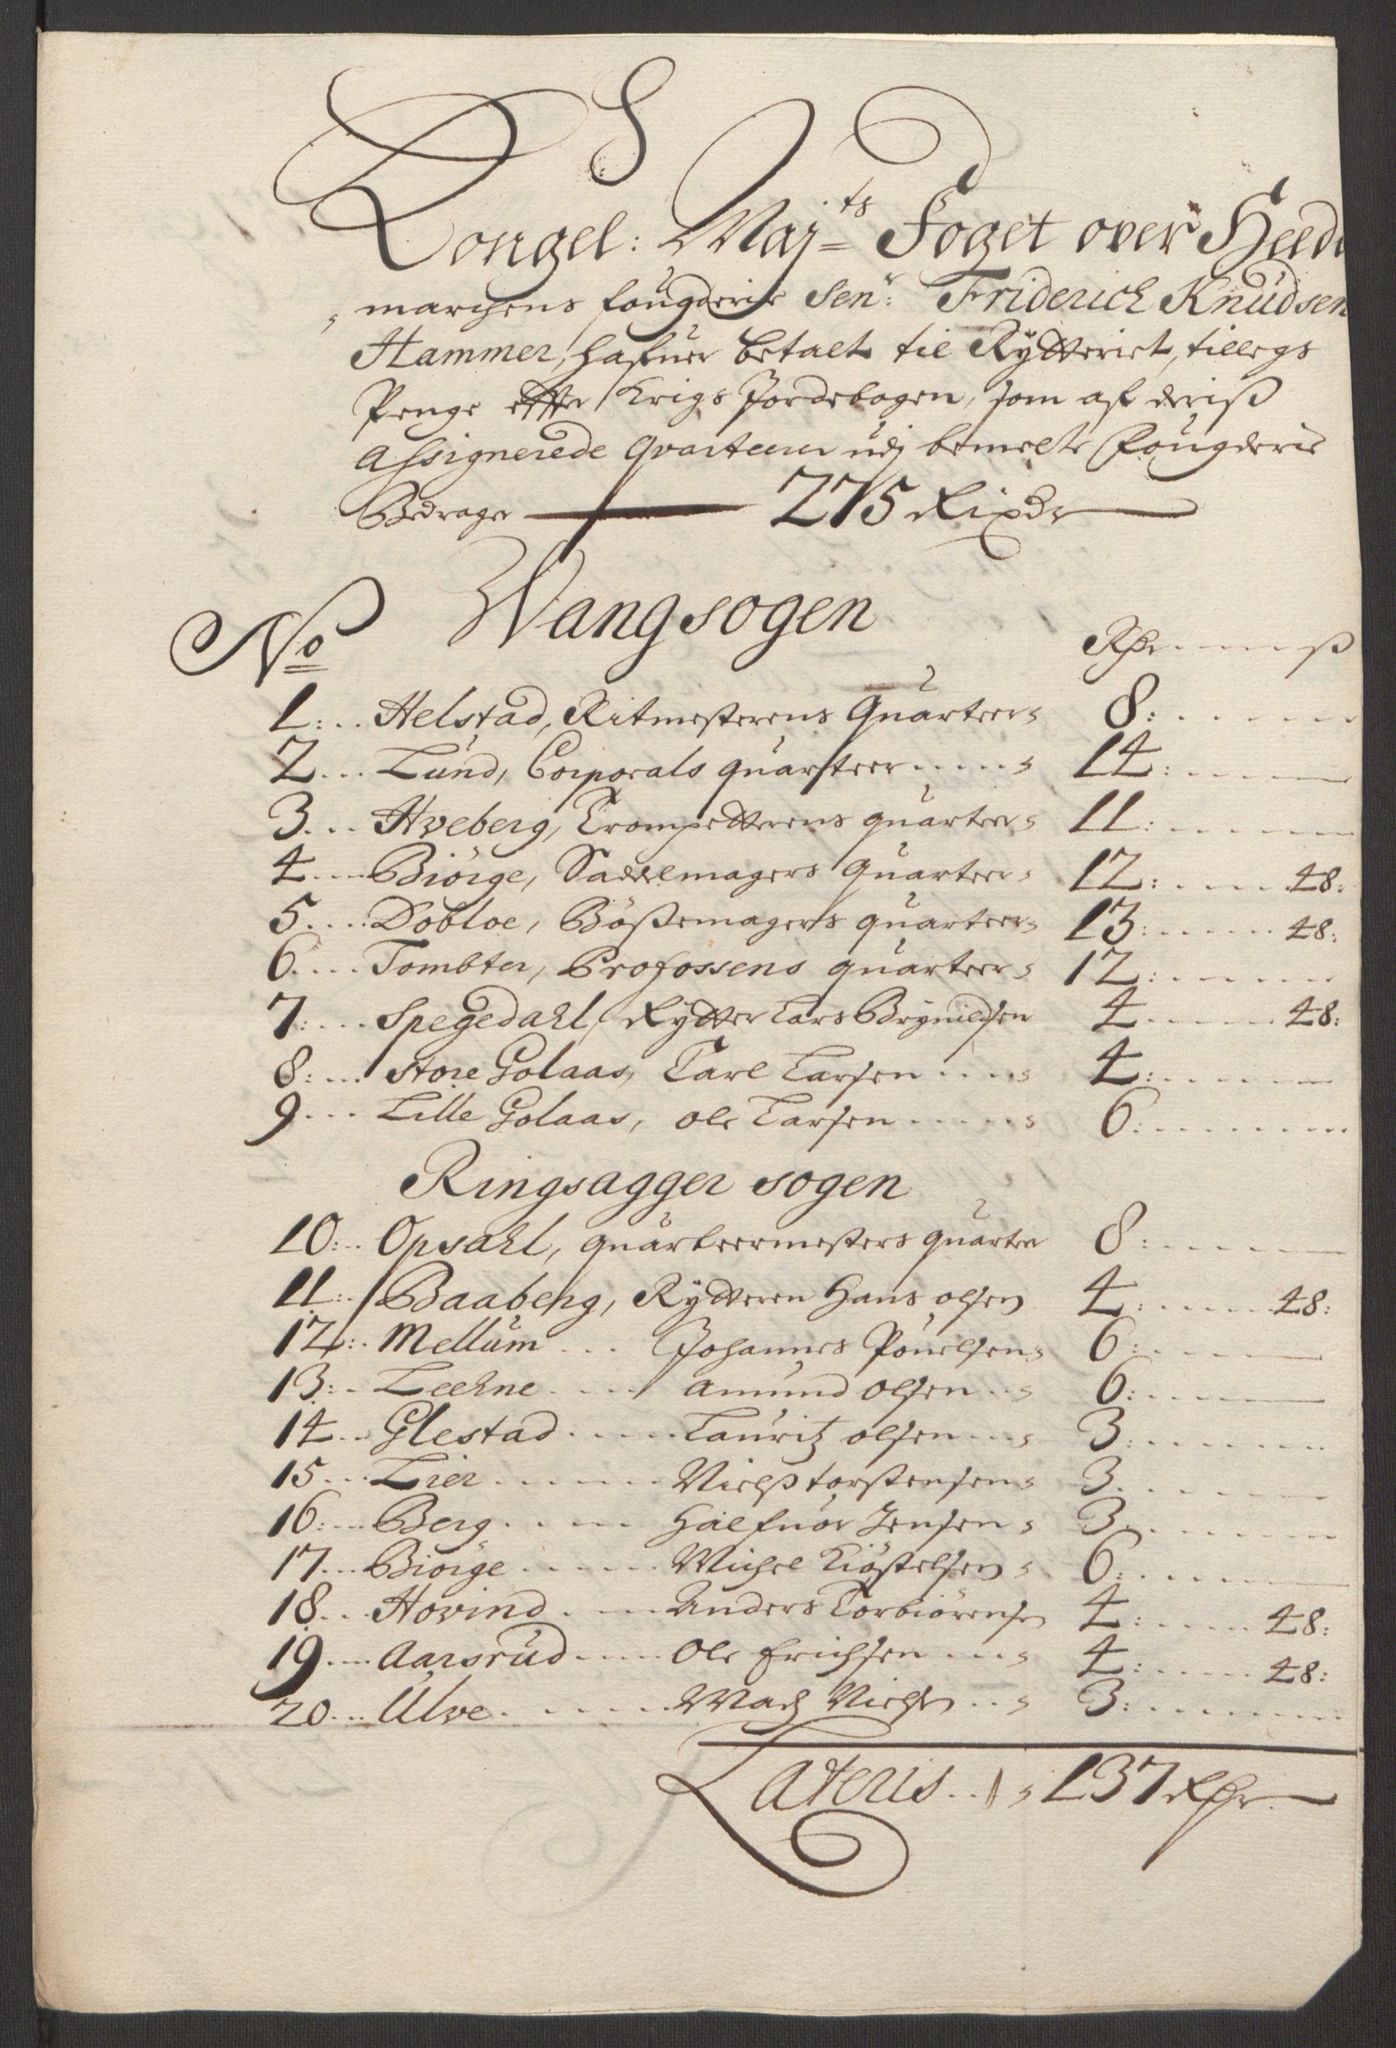 Kongel: Maj:ts Foget over Heed
marchens fougderie Sen:r Friderich Knudsen
Hammer, hafuer betalt til Rytteriet, tillegs
Penge effter Krigs Jordebogen, som af deris
Assignerede Qvarteerer udj bemelte Fougderie
Bedrager 275 Rixdr
Wangsogen
No Rdr ß
1: Helstad, Ritmesterens Quarteer 8:
2 Lund, Corporals quarteer 14:
3 Hveberg, Trompetterens quarteer 11:
4 Biörge, Saddelmagers Quarteer 12: 48:
5 Dobloe, Bößemagers quarteer 13: 48:
6 Tombter, Profossens quarteer 12:
7: Spegedahl, Rytter Lars Brynildsen 4 48:
8: Store Golaas, Carl Larsen 4:
9 Lille Golaas, Ole Larsen 6:
Ringsagger sogen
10: Opsahl, quarteermesters quarteer 8:
11: Baaberg, Rytteren Hans Olsen 4: 48:
12: Mellum Johannes Pouelsen 6:
13: Leehne Amund Olsen 6:
14 Glestad Lauritz Olsen 3:
15 Lier Nielß torstensen 3
16: Berg Halfuor Jensen 3
17 Biörge Michel Kiöstelsen 6:
18 Hovind Anders Torbiörensen 4: 48:
19 Aarsrud Ole Erichsen 4: 48:
20 Ulve Madz Nielsen 3:
Lateris 137 Rdr